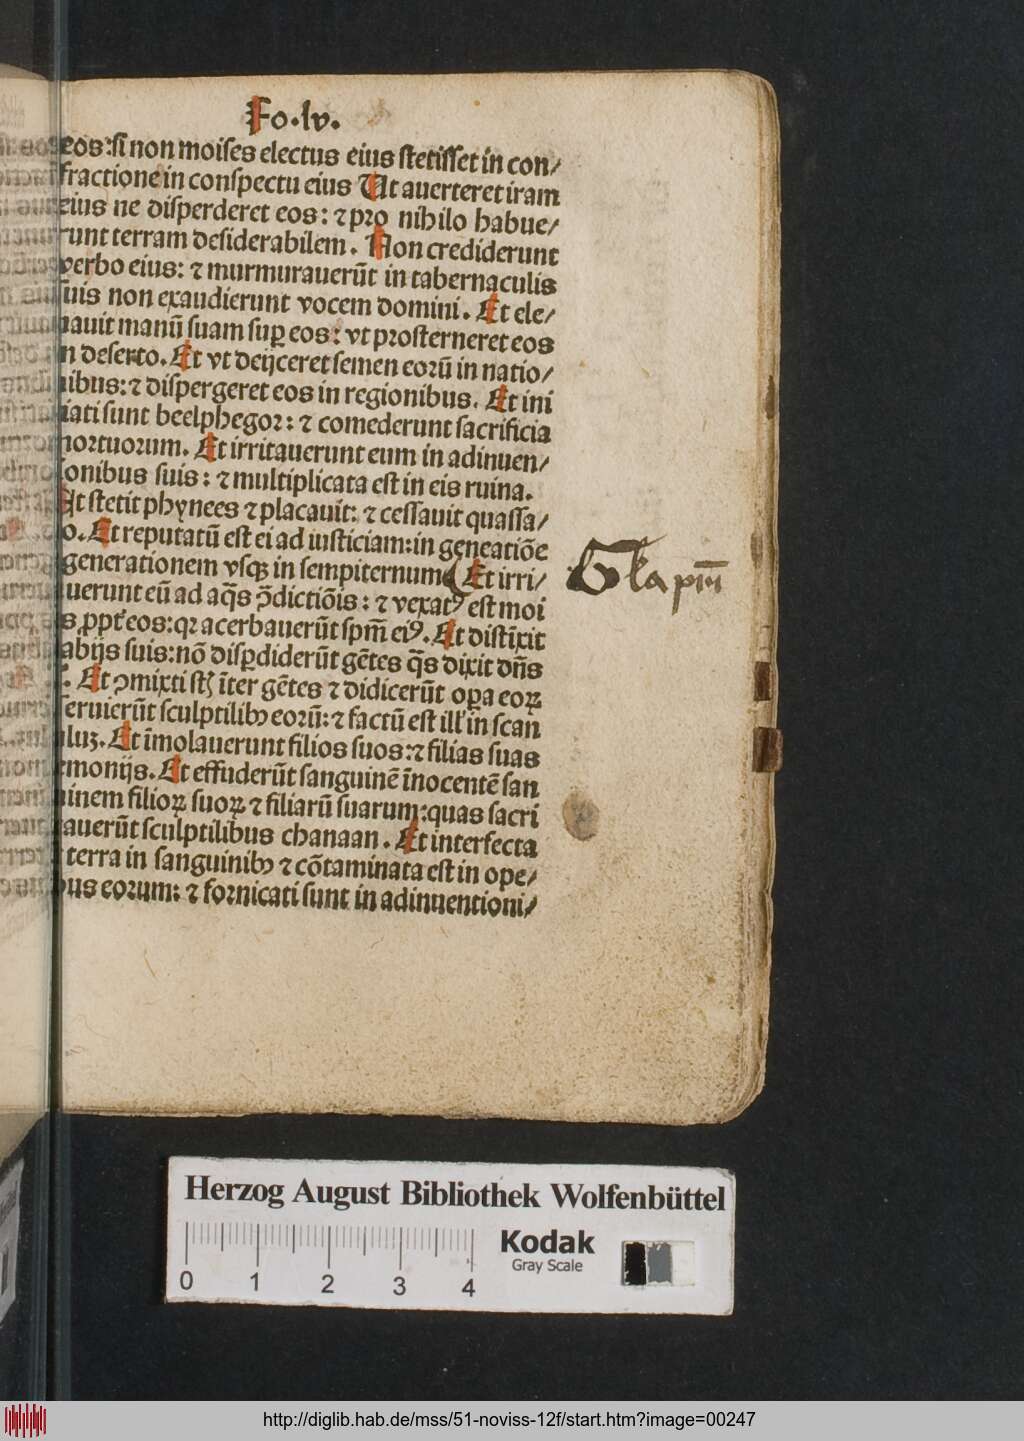 Fo.lv.
eos: si non moises electus eius stetisset in con/
fractione in conspectu eius Ut auerteret iram
eius ne disperderet eos: ⁊ pro nihilo habue/
runt terram desiderabilem. Non crediderunt
verbo eius: ⁊ murmurauerūt in tabernaculis
suis non exaudierunt vocem domini. Et ele/
uauit manū suam suꝑ eos: vt prosterneret eos
in deserto. Et vt deijceret semen eorū in natio/
nibus: ⁊ dispergeret eos in regionibus. Et ini
tiati sunt beelphegor: ⁊ comederunt sacrificia
mortuorum. Et irritauerunt eum in adinuen/
tionibus suis: ⁊ multiplicata est in eis ruina.
Et stetit phynees ⁊ placauit: ⁊ cessauit quassa/
o. Et reputatū est ei ad iusticiam: in geneatiōe
generationem vsqꝫ in sempiternum Et irri/
Gła pm̄
uerunt eū ad aq̄s ↄ̄dictiōis: ⁊ vexatꝰ est moi
s ꝓpt̄ eos: qꝛ acerbauerūt spm̄ eiꝰ. Et distīxit
labijs suis: nō disꝑdiderūt gētes q̄s dixit dn̄s
Et ↄmixti st̄ īter gētes ⁊ didicerūt oꝑa eoꝝ
seruierūt sculptilibꝫ eorū: ⁊ factū est ill' in scan
aluꝫ. Et īmolauerunt filios suos: ⁊ filias suas
emonijs. Et effuderūt sanguinē īnocentē san
uinem filioꝝ suoꝝ ⁊ filiarū suarum: quas sacri
auerūt sculptilibus chanaan. Et interfecta
terra in sanguinibꝫ ⁊ cōtaminata est in ope/
bus eorum: ⁊ fornicati sunt in adinuentioni/
Herzog August Bibliothek Wolfenbüttel
0 1 2 3 4
Kodak
Gray Scale
http://diglib.hab.de/mss/51-noviss-12f/start.htm?image=00247